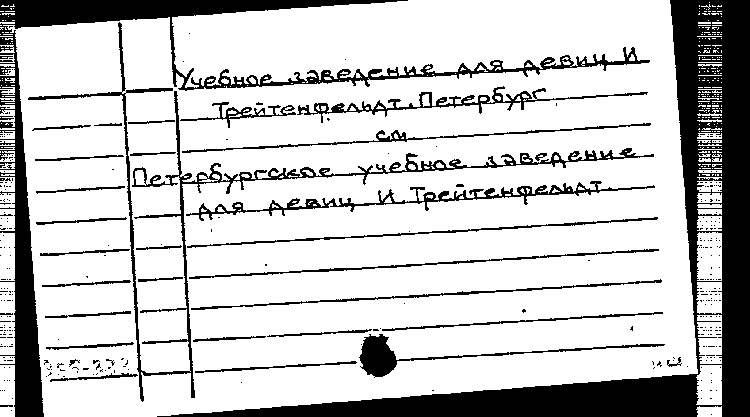 Учебное заведение для девиц И
Трейтенфельдт. Петербург
см.
Петербургское учебное заведение
для девиц И. Трейтенфельдт.